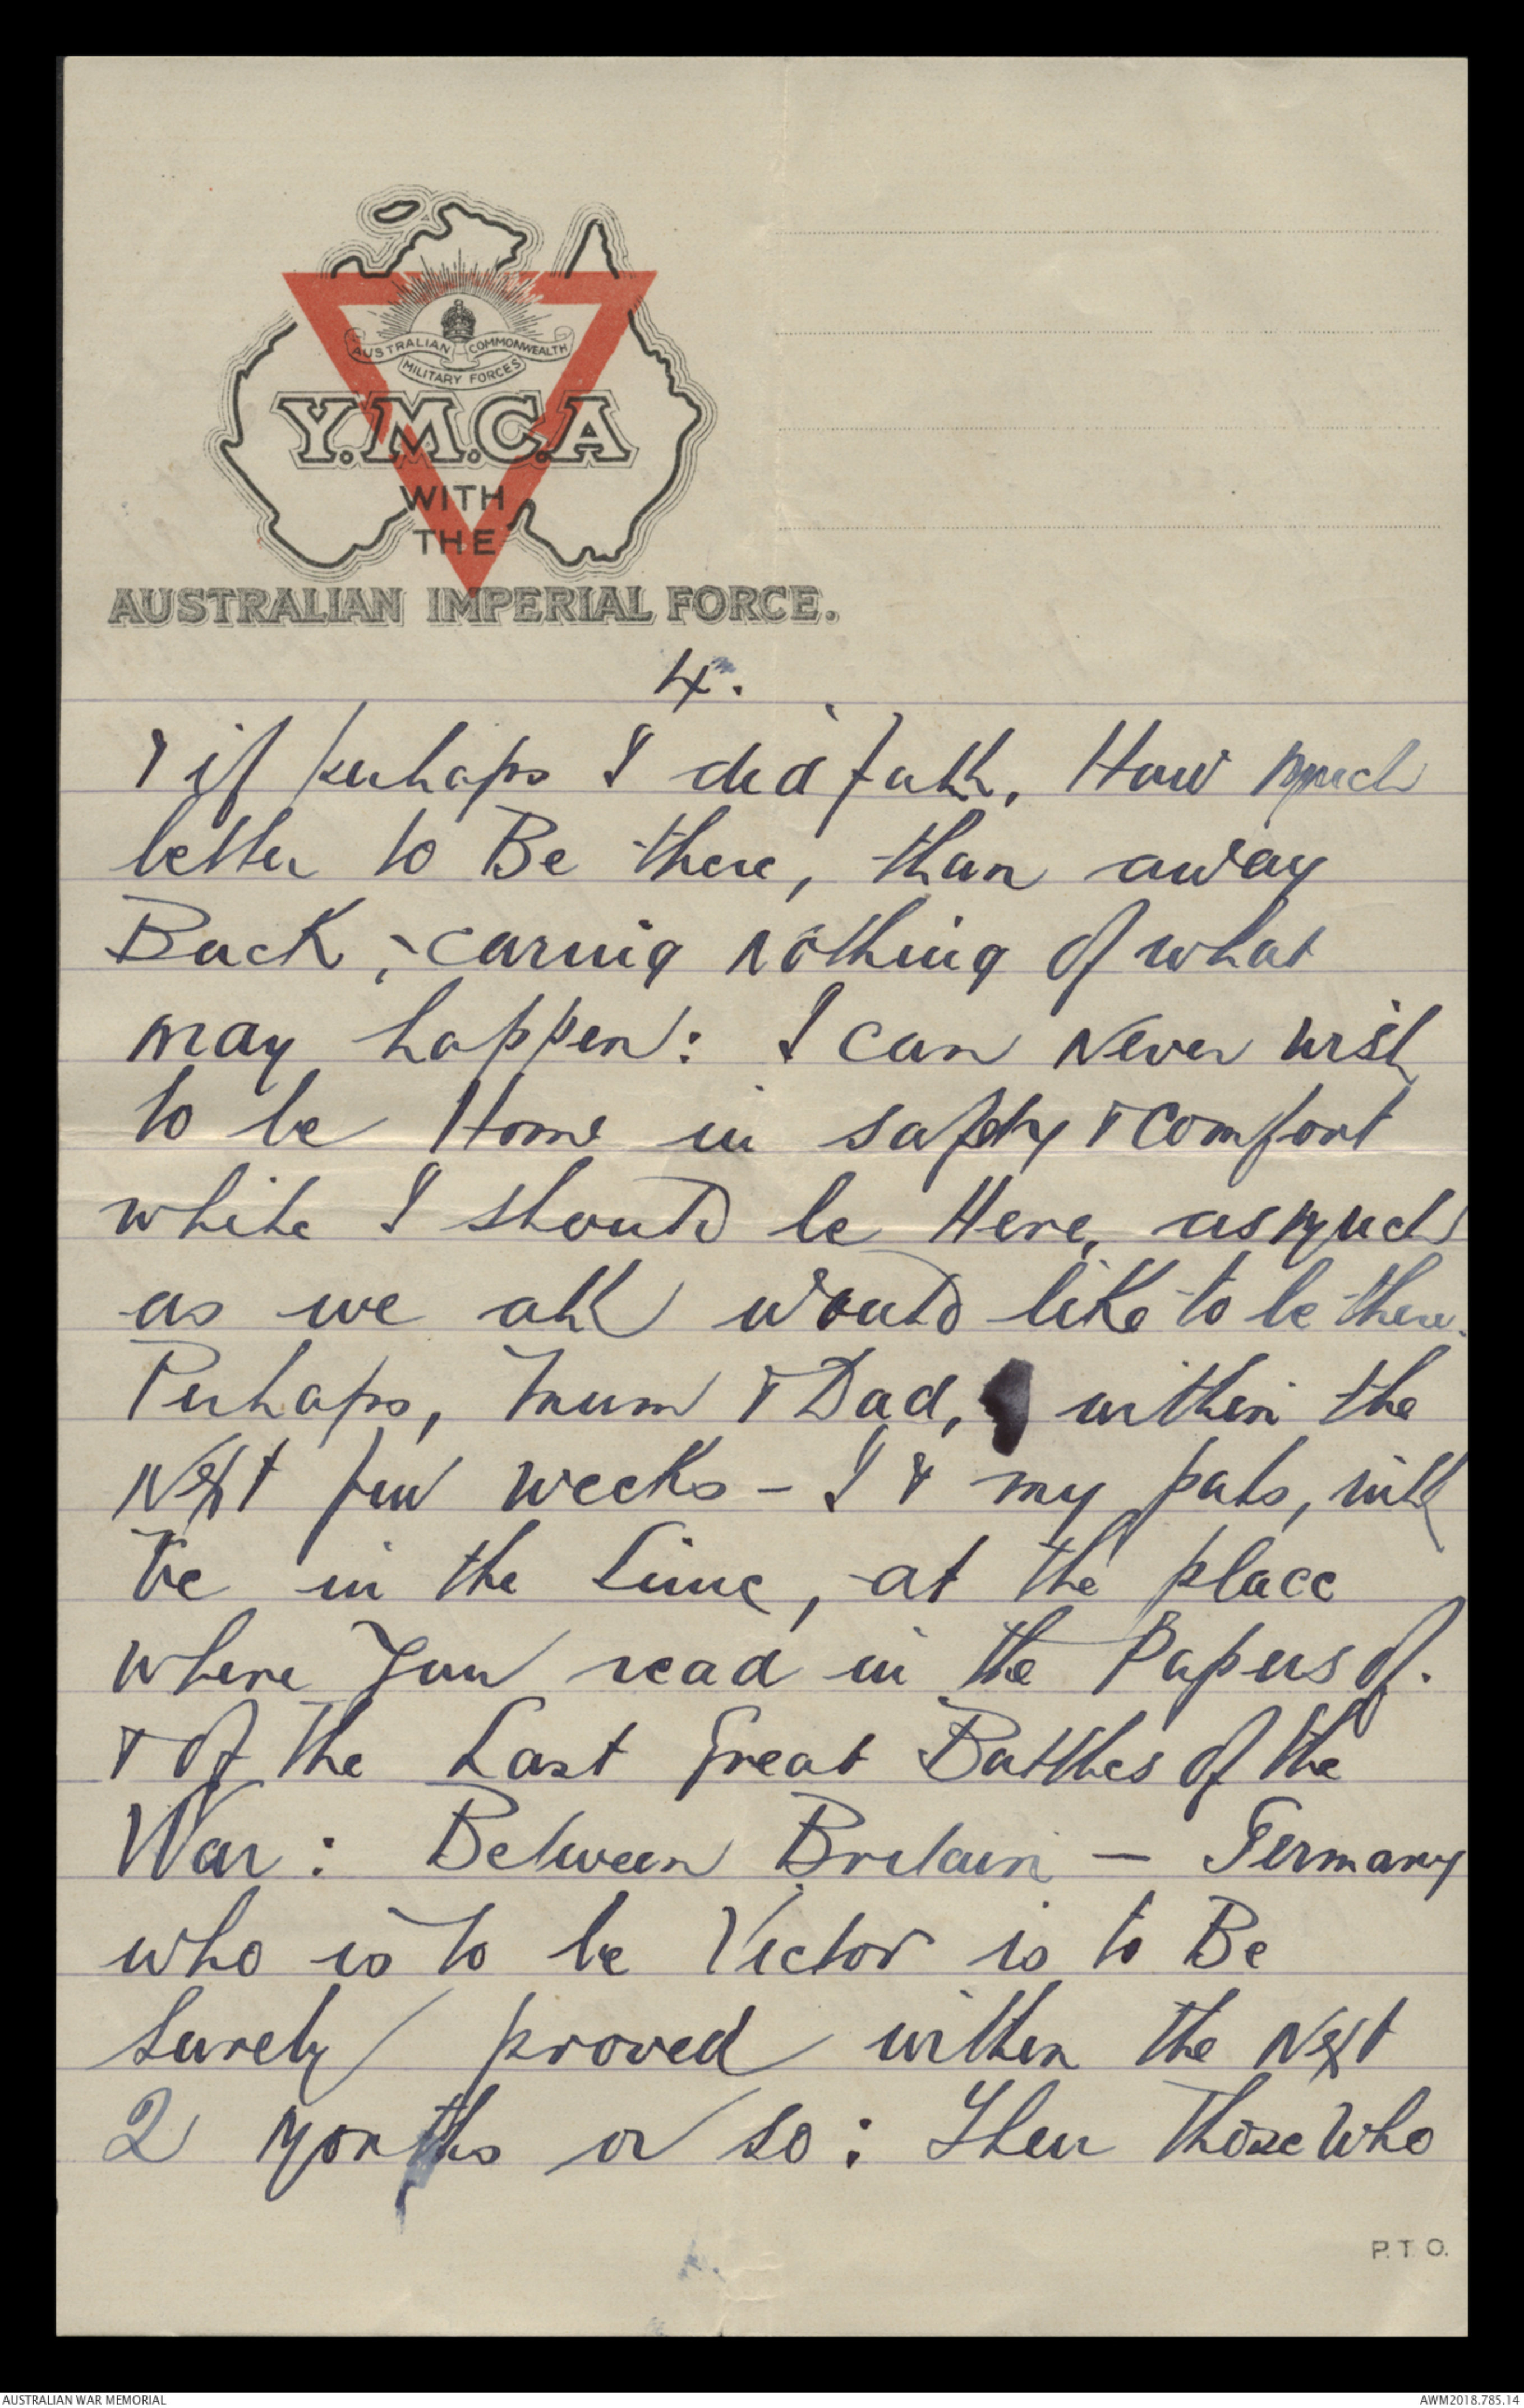 AUSTRALIAN COMMONWEALTH
MILITARY FORCES
Y.M.C.A
WITH
THE
AUSTRALIAN IMPERIAL FORCE.
4.
& if perhaps I did fall, How much
better to Be there, than away
Back, - caring nothing of what
may happen: I can Never wish
to be Home in safety & Comfort
while I should be Here, as much
as we all would like to be there.
Perhaps, Mum & Dad, within the
Next few weeks - I & my pals, will
be in the Line, at the place
where You read in the Papers of.
& of the Last Great Battles of the
War: Between Britain - Germany
who is to be Victor is to Be
Surely proved within the Next
2 Months or so: Then Those Who
P.T.O.
AUSTRALIAN WAR MEMORIAL
AWM2018.785.14